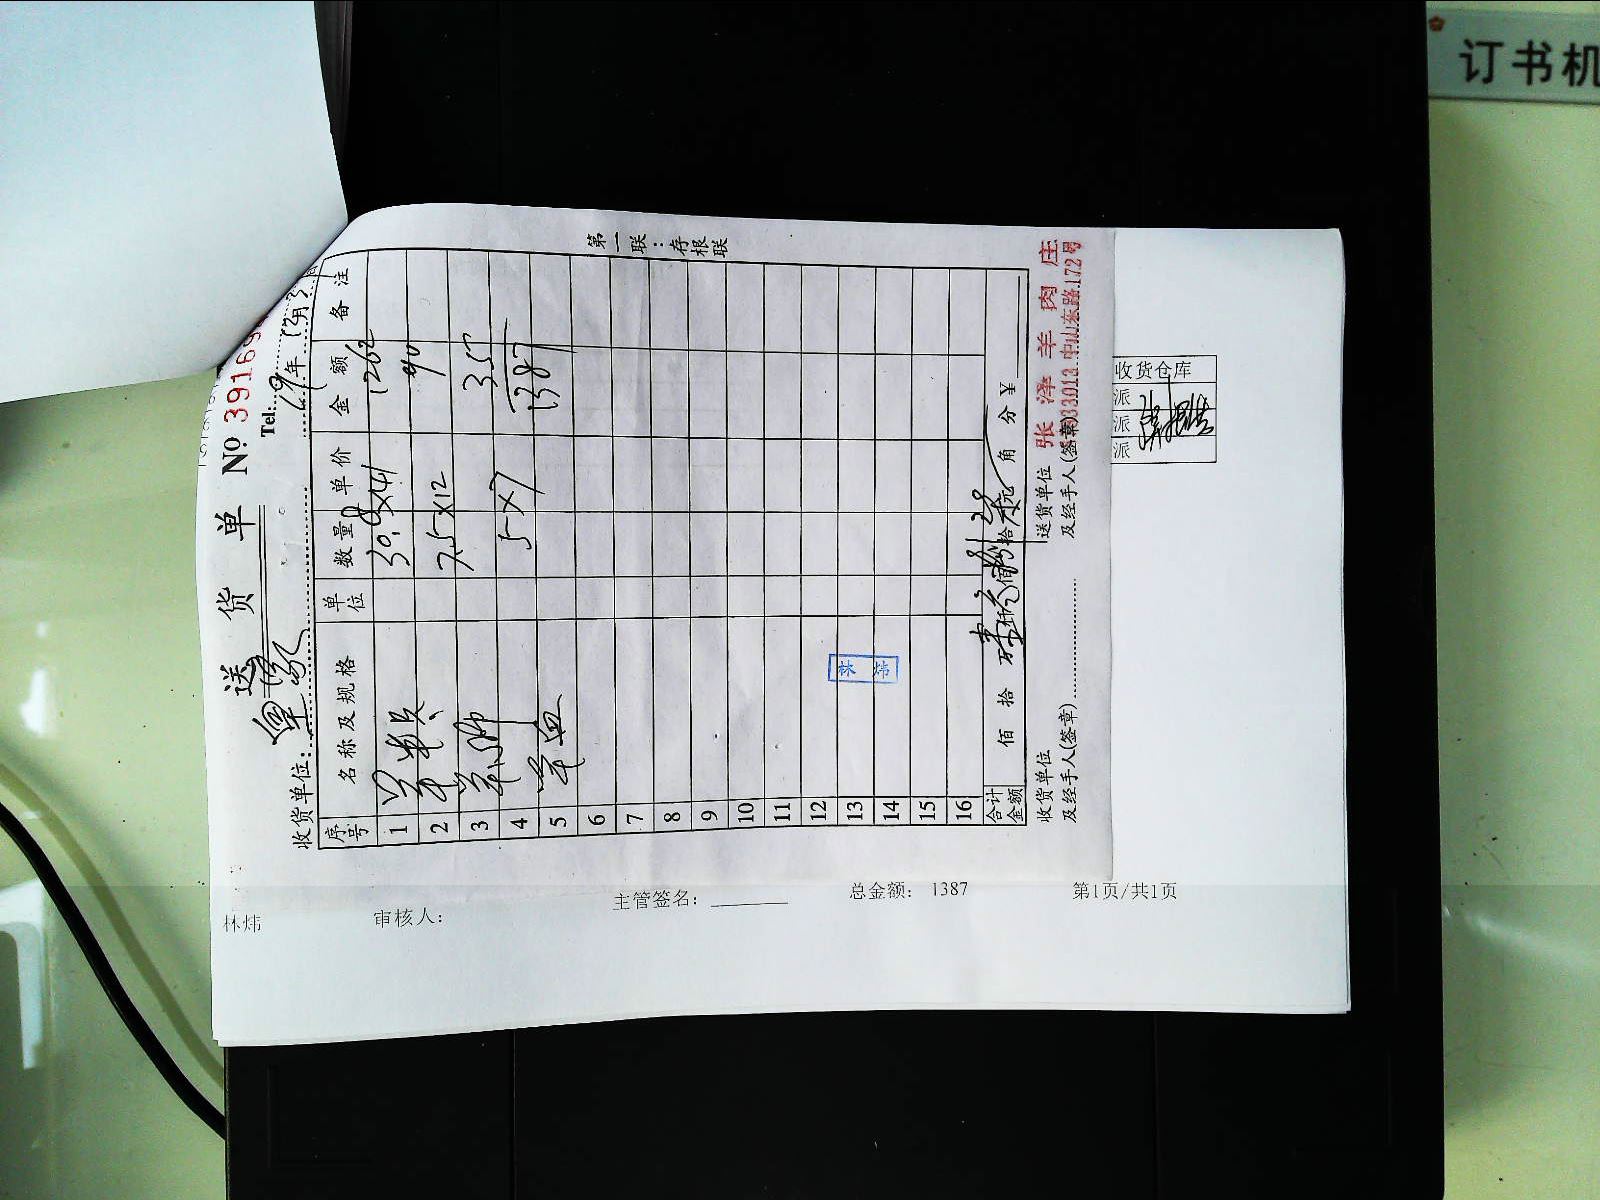 订书机
送货单
№ 39169
Tel:
19年12月3日
收货单位:
序号 名称及规格 单位 数量 单价 金额 备注
1 30.8×41 1262
2 7.5×12 90
3 羊脚
4 5×7 35
5 羊血 1387
6
7
8
9
10
11
12
13
14
15
16
林炜
合计金额 佰 拾 万 仟 佰 拾 元 角 分 ¥
收货单位及经手人(签章)
送货单位及经手人(签章)
张泽羊肉庄
33013 中山东路172号
第一联:存根联
收货仓库
派
派
派
林炜
审核人:
主管签名:
总金额: 1387
第1页/共1页